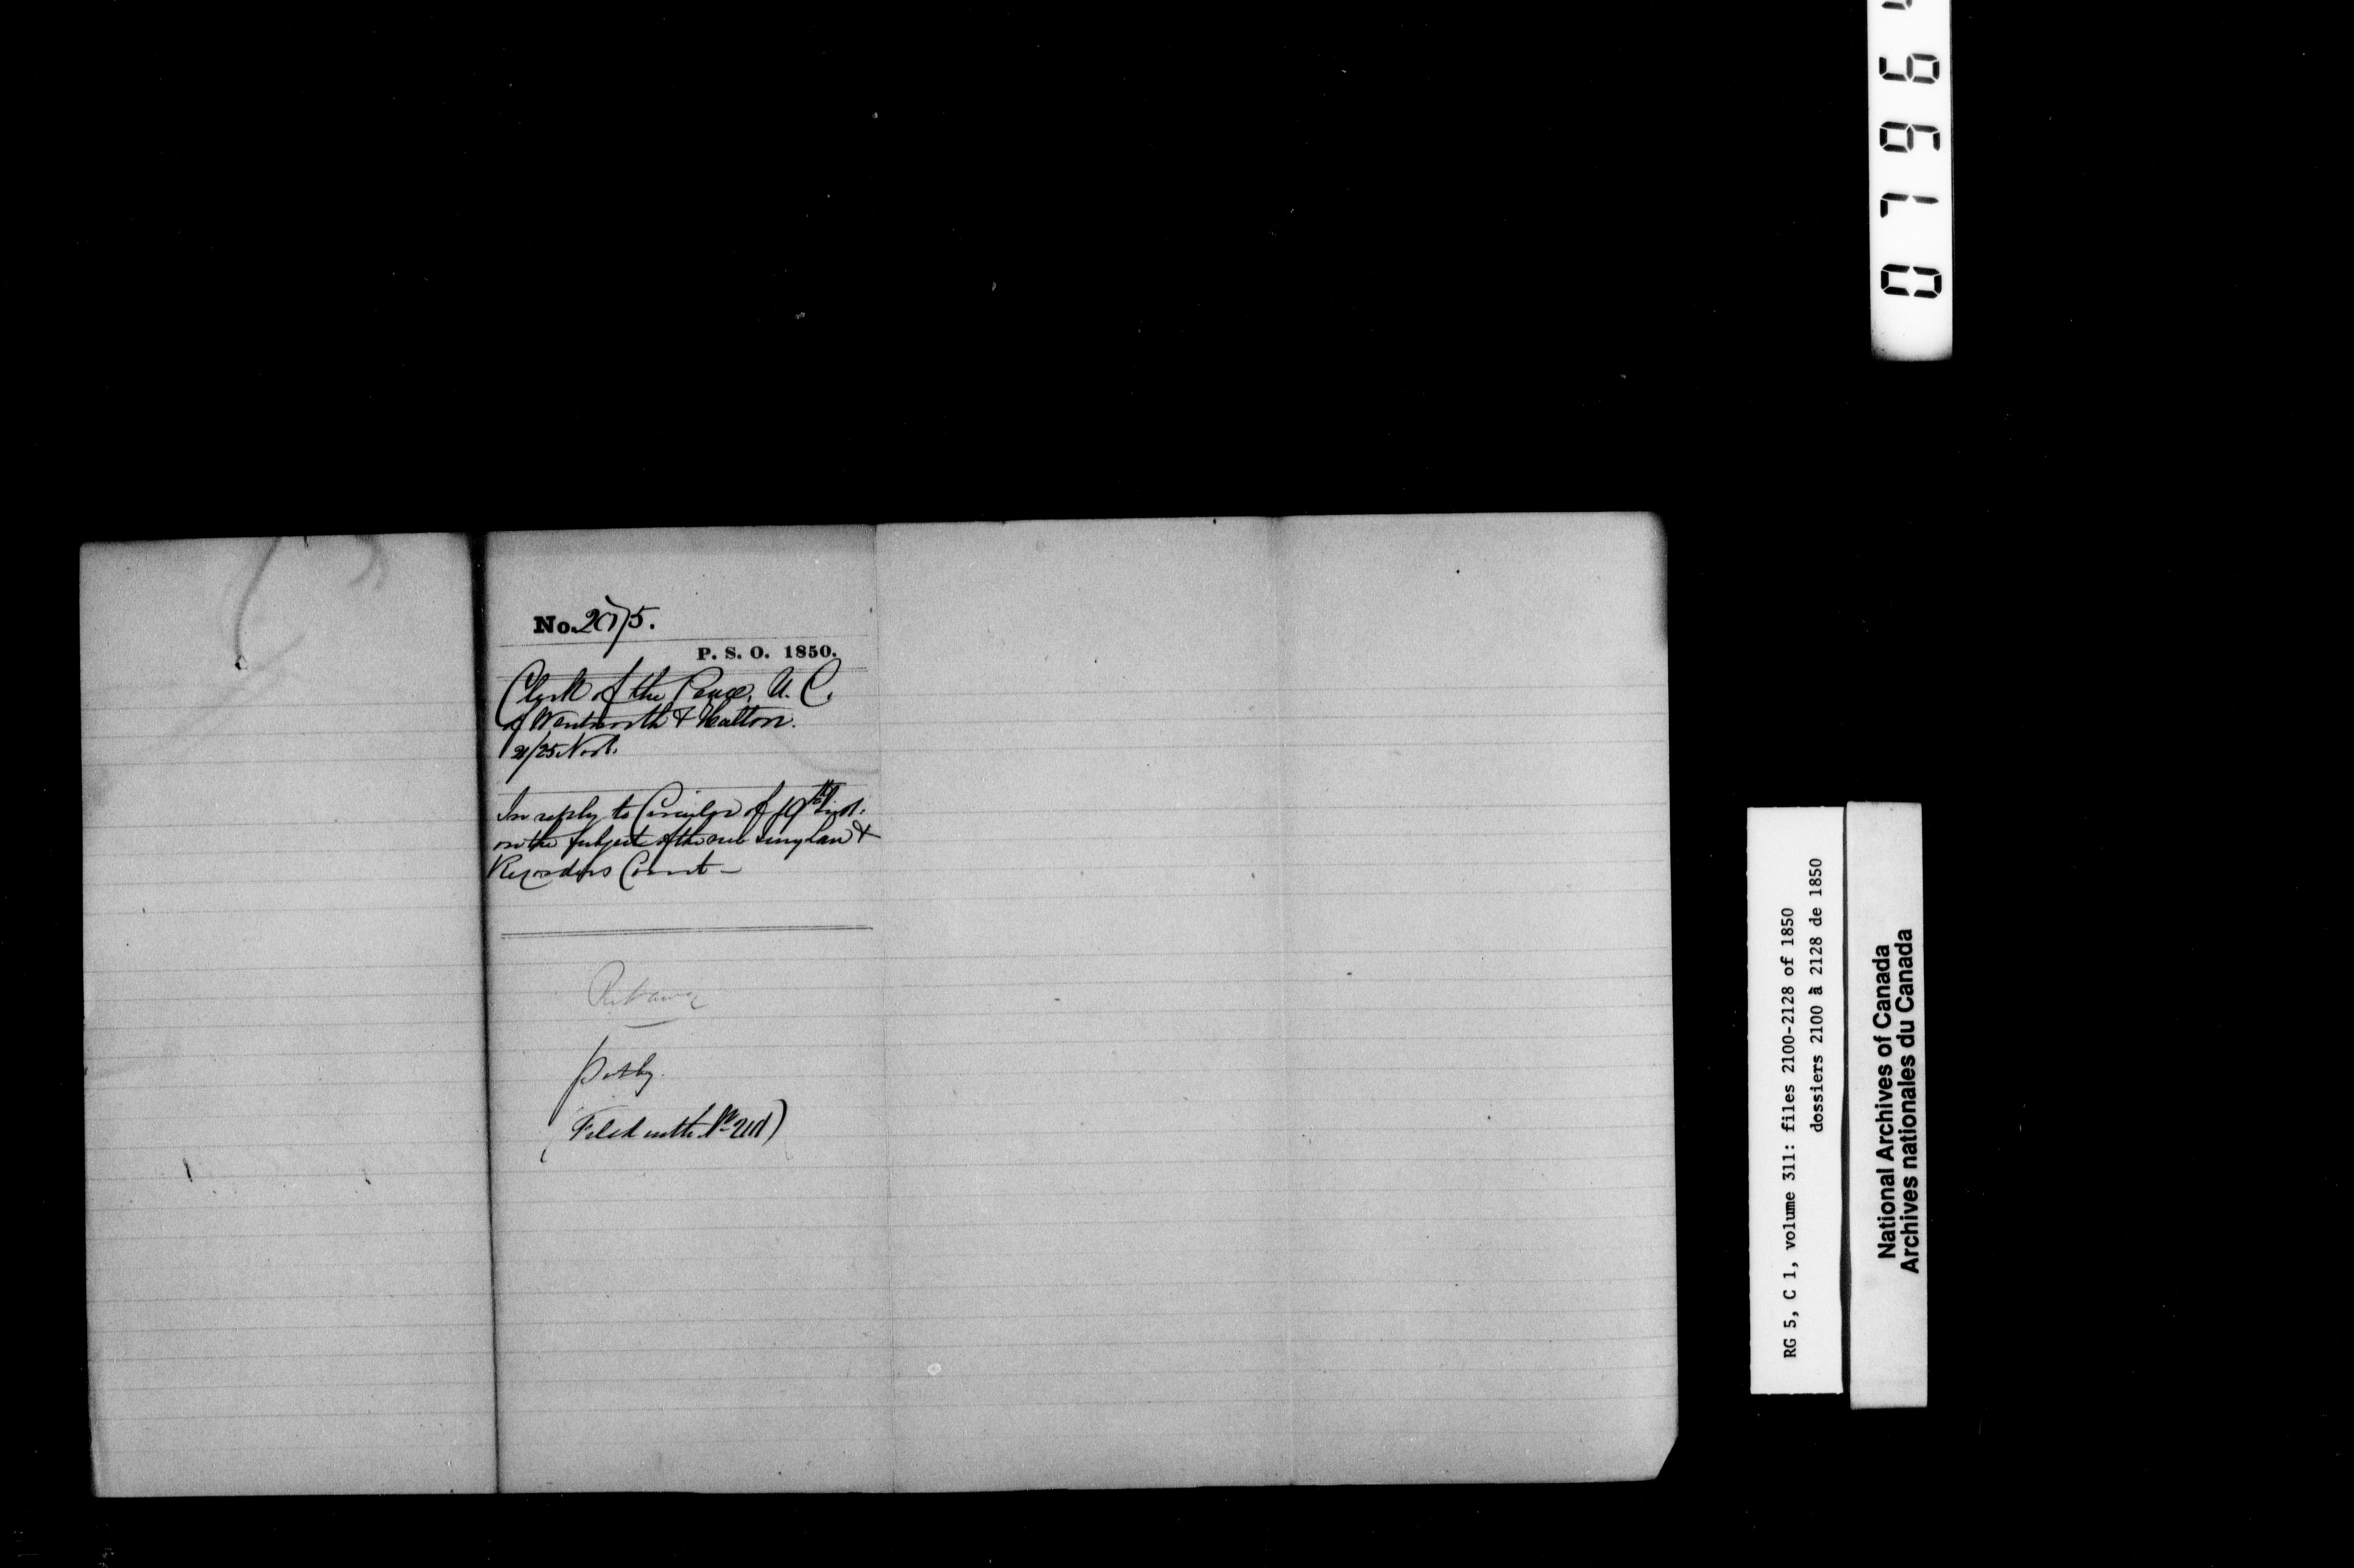 No. 2075.
P. S. O. 1850.
Clerk of the Peace, U. C.
of Wentworth & Halton.
21/25 Novr.
In reply to Circular of 19th Inst.
on the subject of the new Jury Law &
Recorders Court –
Put away
put by.
(Filed with No 2111)
07964
RG 5, C 1, volume 311: files 2100-2128 of 1850
dossiers 2100 à 2128 de 1850
National Archives of Canada
Archives nationales du Canada